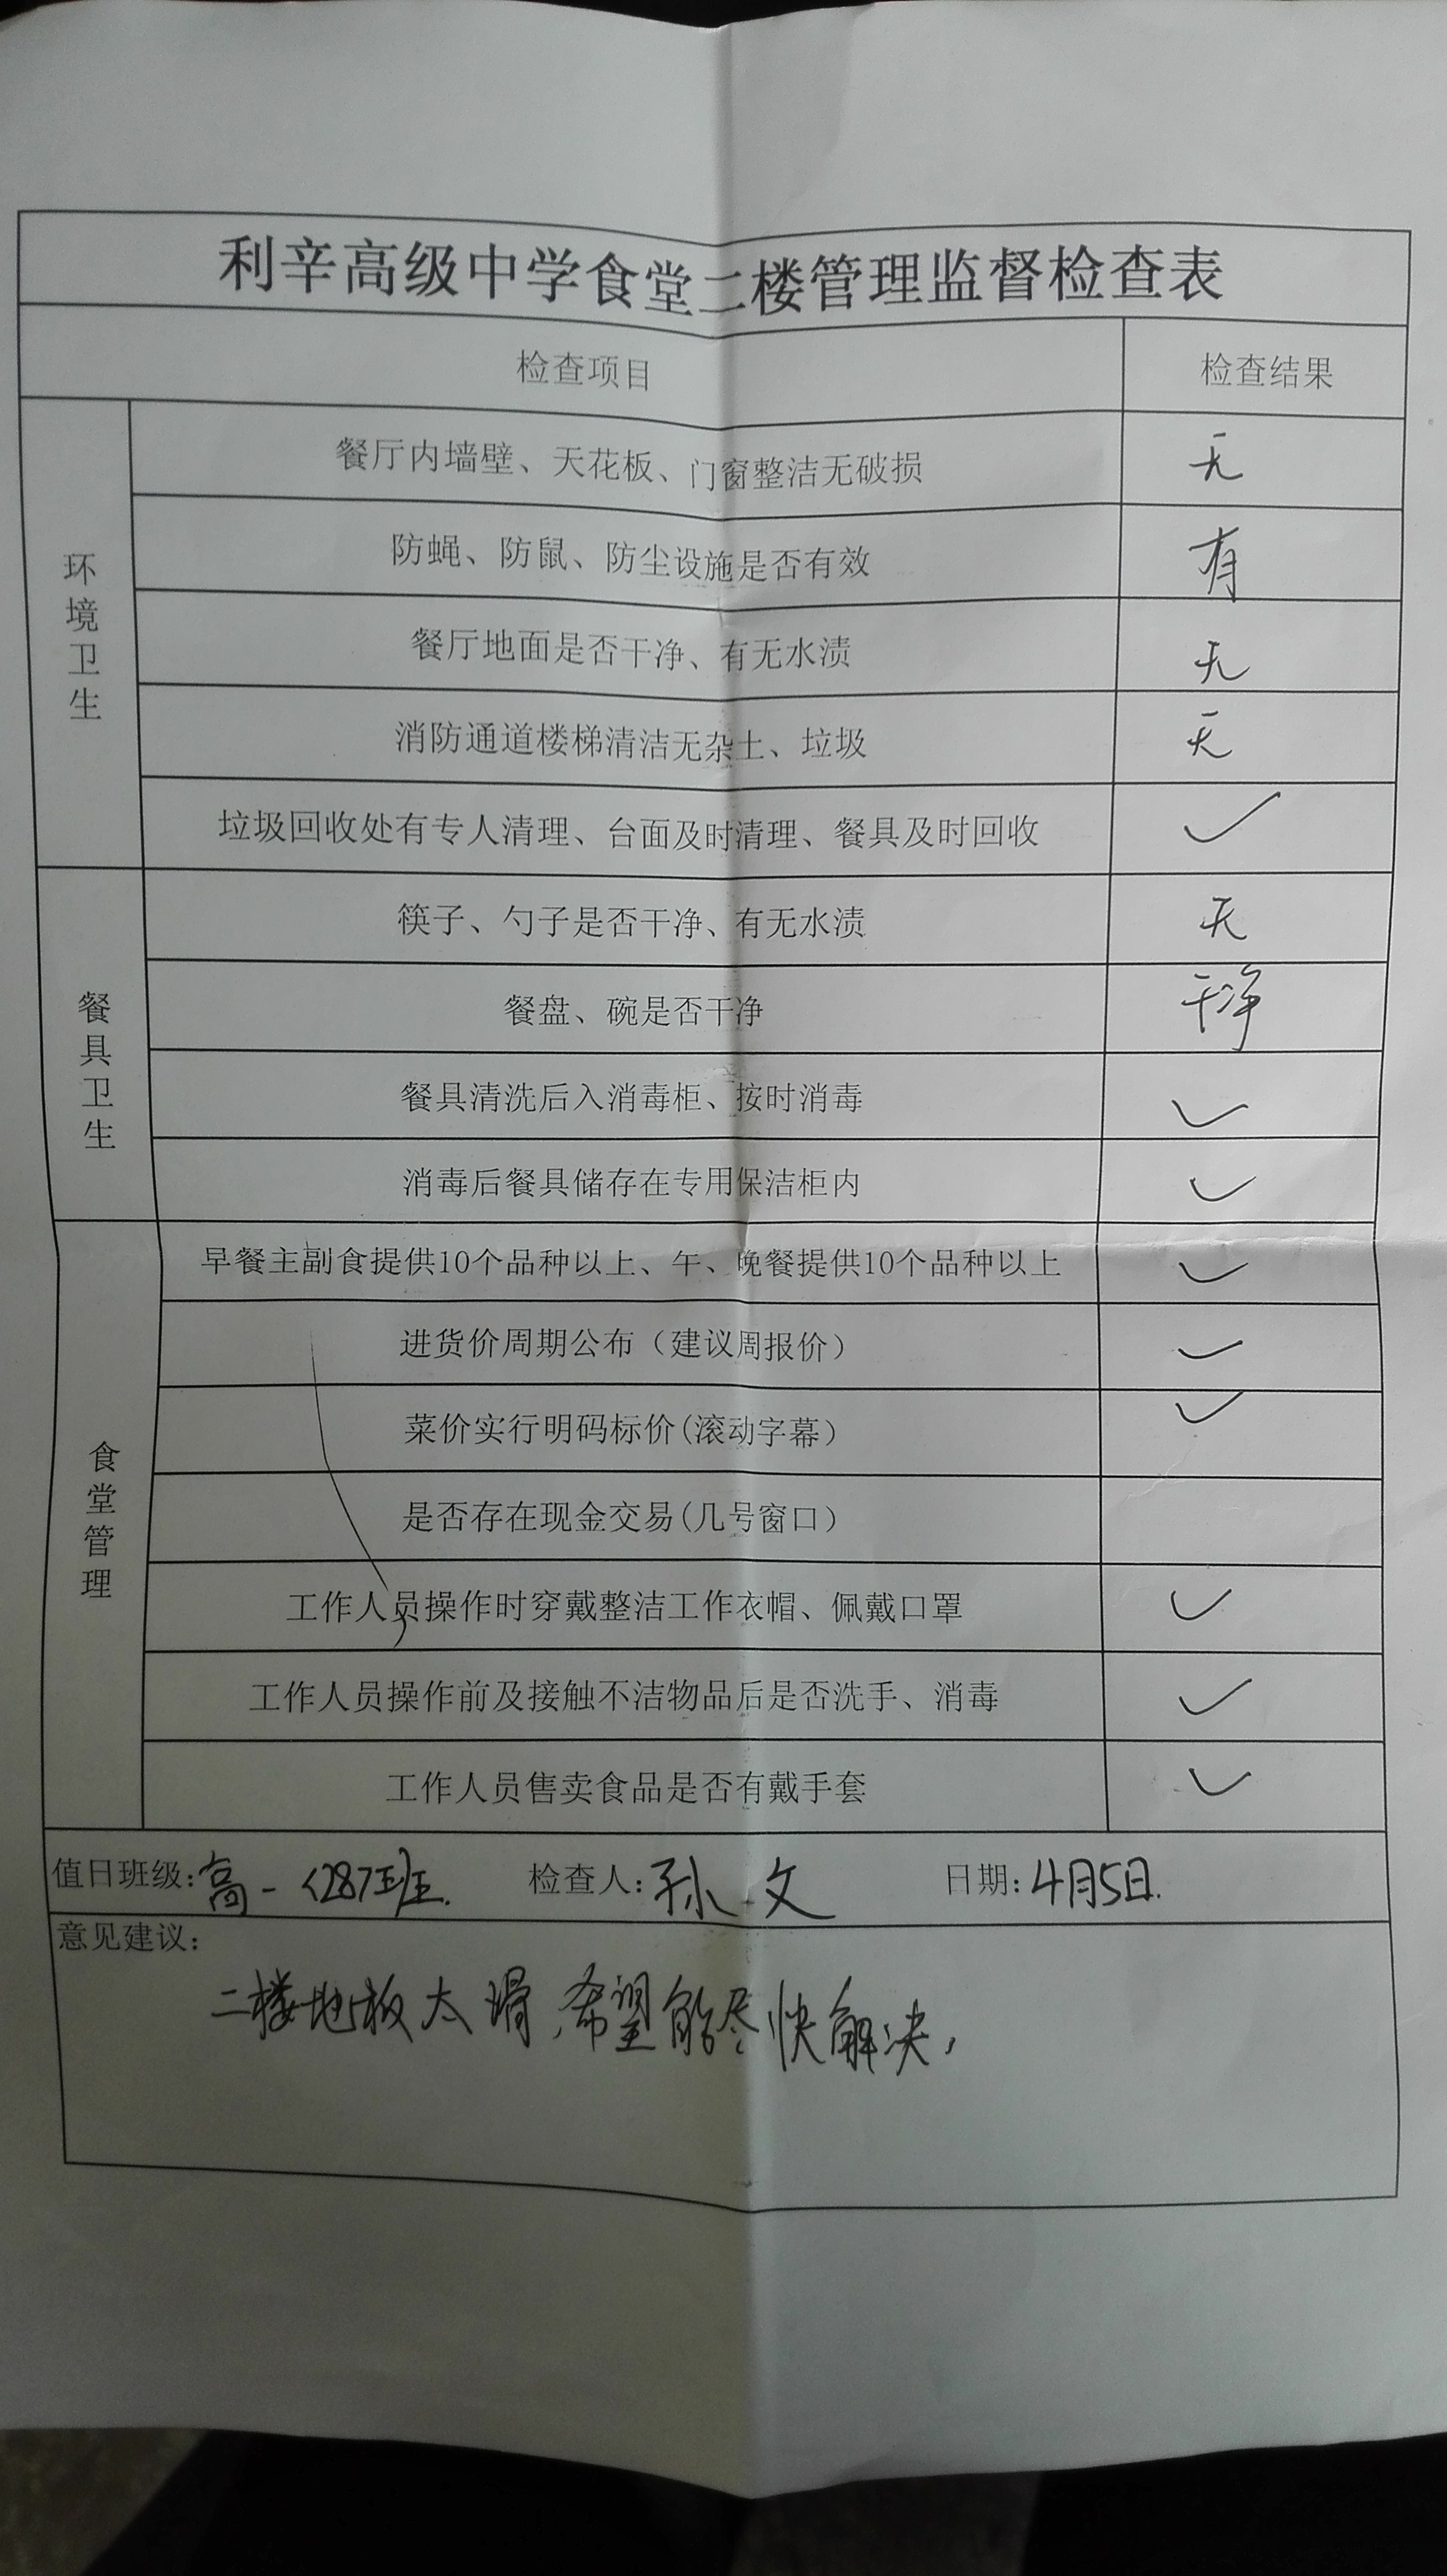 利辛高级中学食堂二楼管理监督检查表
检查项目 检查结果
环境卫生
餐厅内墙壁、天花板、门窗整洁无破损 无
防蝇、防鼠、防尘设施是否有效 有
餐厅地面是否干净、有无水渍 无
消防通道楼梯清洁无杂土、垃圾 无
垃圾回收处有专人清理、台面及时清理、餐具及时回收 ✓
餐具卫生
筷子、勺子是否干净、有无水渍 无
餐盘、碗是否干净 干净
餐具清洗后入消毒柜、按时消毒 ✓
消毒后餐具储存在专用保洁柜内 ✓
食堂管理
早餐主副食提供10个品种以上、午、晚餐提供10个品种以上 ✓
进货价周期公布（建议周报价） ✓
菜价实行明码标价(滚动字幕） ✓
是否存在现金交易(几号窗口）
工作人员操作时穿戴整洁工作衣帽、佩戴口罩 ✓
工作人员操作前及接触不洁物品后是否洗手、消毒 ✓
工作人员售卖食品是否有戴手套 ✓
值日班级:高一<28>班. 检查人:孙文 日期:4月5日.
意见建议:
二楼地板太滑,希望能尽快解决,